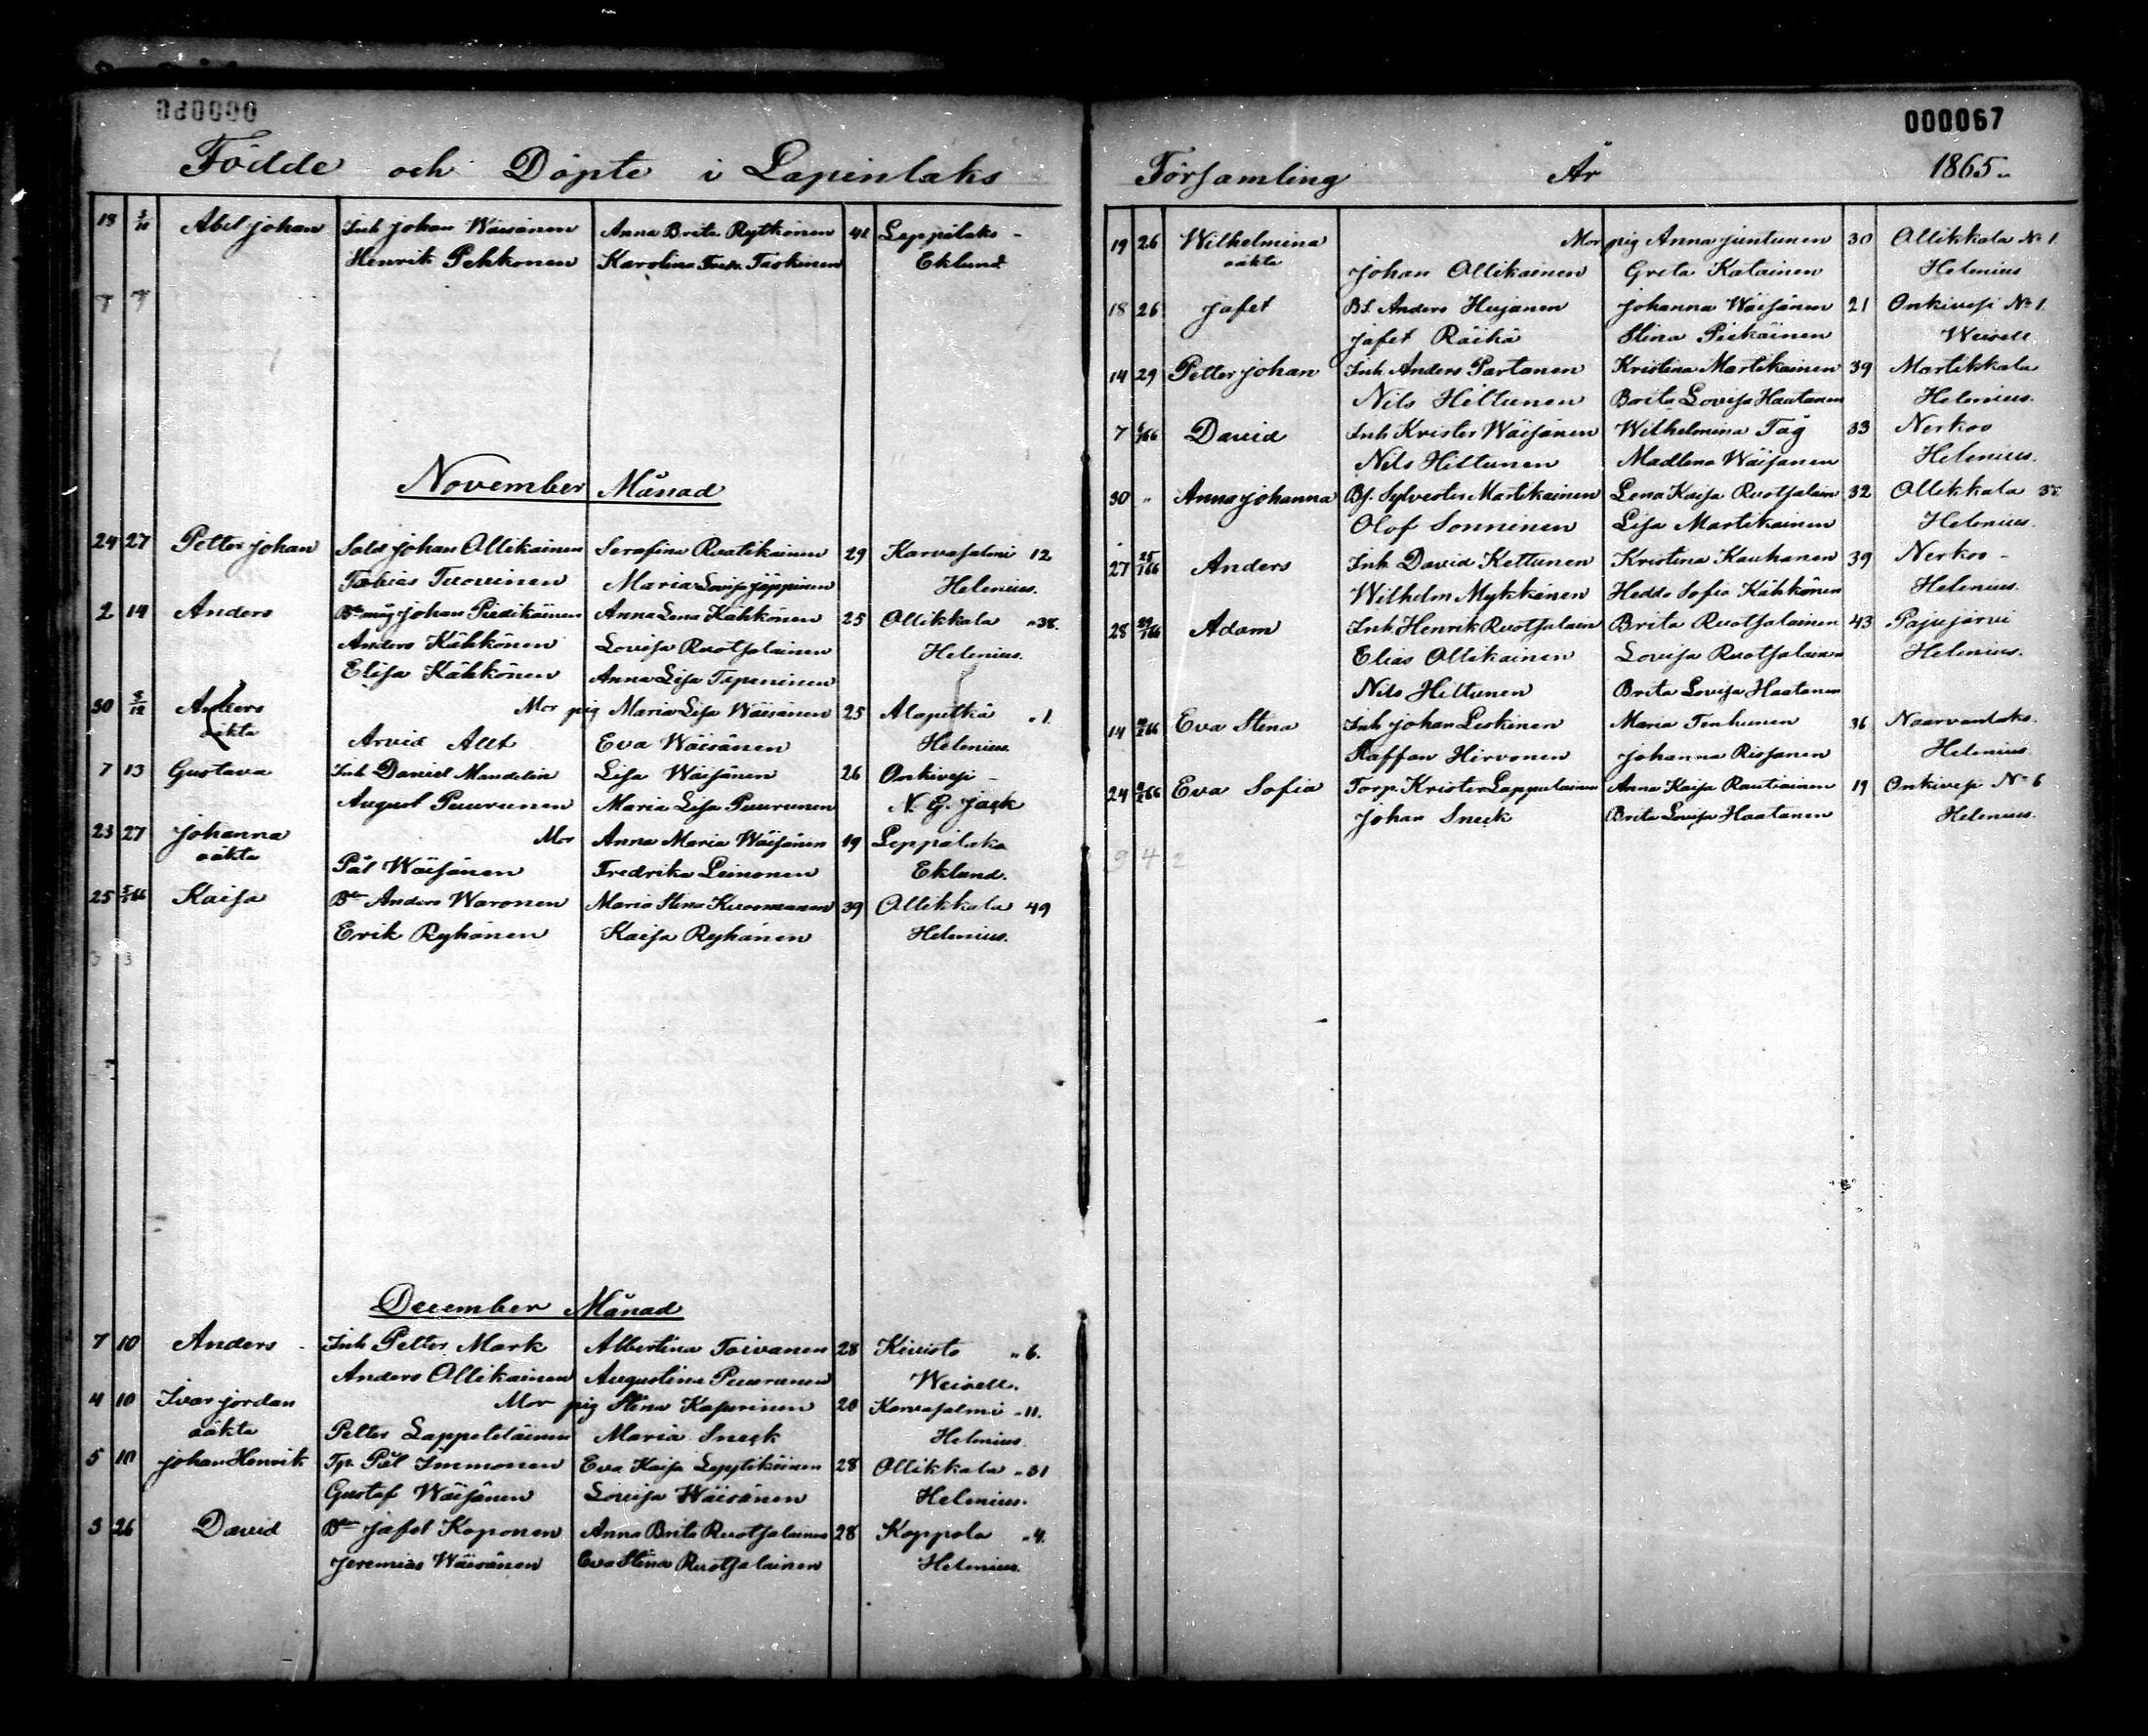 Födde och Döpte i Lapinlaks
13 3/11 Abel Johan Inh Johan Wäisänen Anna Brita Rytkönen 41 Leppälaks -
Henrik Pehkonen Karolina Fredr. Taskinen Eklund
7 7
November Månad
24 27 Petter Johan Sold Johan Ollikainen Serafina Ruotikainen 29 Karvasalmi 12
Tobias Tuovinen Maria Lovisa Jäppinen Helenius.
2 14 Anders Bde måg Johan Piedikäinen Anna Lena Kähkönen 25 Ollikkala „ 38.
Anders Kähkönen Lovisa Ruotsalainen Helenius.
Elisa Kähkönen Anna Lisa Tapaninen
30 3/12 Anders Mor pig Maria Lisa Wäisänen 25 Alapitkä „ 1.
oäkta Arvid Allt Eva Wäisänen Helenius.
7 13 Gustava Inh Daniel Mandelin Lisa Wäisänen 26 Onkivesi -
August Puurunen Maria Lisa Puurunen N. G. Jack
23 27 Johanna Mor Anna Maria Wäisänen 19 Leppälaks
oäkta Pål Wäisänen Fredrika Leinonen Eklund.
25 5/1 66 Kaisa Bde Anders Waronen Maria Stina Kuosmanen 39 Ollikkala 49
Erik Ryhänen Kaisa Ryhänen Helenius.
3 3
December Månad
7 10 Anders Inh Petter Mark Albertina Toivanen 28 Kivistö „ 6.
Anders Ollikainen Augustina Puurunen Weisell.
4 10 Ivar Jordan Mor pig Stina Kasurinen 20 Karvasalmi „ 11.
oäkta Petter Lappeteläinen Maria Sneck Helenius.
5 10 Johan Henrik Tp. Pål Immonen Eva Kaisa Lyytikäinen 28 Ollikkala „ 31
Gustaf Wäisänen Lovisa Wäisänen Helenius.
3 26 David Bde Jafet Koponen Anna Brita Ruotsalainen 28 Koppola „ 4.
Jeremias Wäisänen Eva Stina Ruotsalainen Helenius.
000067
Församling År 1865.
19 26 Wilhelmina Mor pig Anna Juntunen 30 Ollikkala No 1.
oäkta Johan Ollikainen Greta Katainen Helenius
18 26 Jafet Bs. Anders Hujanen Johanna Wäisänen 21 Onkivesi No 1.
Jafet Räihä Stina Piekäinen Weisell
14 29 Petter Johan Inh Anders Partanen Kristina Martikainen 39 Martikkala
Nils Hiltunen Brita Lovisa Haatanen Helenius.
7 6/1 66 David Inh Krister Wäisänen Wilhelmina Tåg 33 Nerkoo
Nils Hiltunen Madlena Wäisänen Helenius.
30 „ Anna Johanna Bs. Sylvester Martikainen Lena Kaisa Ruotsalain 32 Ollikkala 38
Olof Sonninen Lisa Martikainen Helenius.
27 25/1 66 Anders Inh David Kettunen Kristina Kauhanen 39 Nerkoo -
Wilhelm Mykkänen Hedda Sofia Kähkönen Helenius.
28 28/1 66 Adam Inh Henrik Ruotsalain Brita Ruotsalainen 43 Pajujärvi
Elias Ollikainen Lovisa Ruotsalainen Helenius.
Nils Hiltunen Brita Lovisa Haatanen
14 10/2 66 Eva Stina Inh Johan Leskinen Maria Tenhunen 36 Naarvanlaks.
Staffan Hirvonen Johanna Rissanen Helenius.
24 2/2 66 Eva Sofia Torp. Krister Lappalainen Anna Kaisa Rautiainen 19 Onkivesi No 6
Johan Sneck Brita Lovisa Haatanen Helenius.
9 4 2